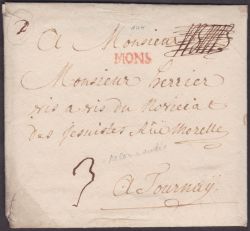 A Monsieur
MONS
Monsieur Perrier
vis a vis du Noviciat
des Jesuistes Rüe Morelle
3
A Tournaÿ